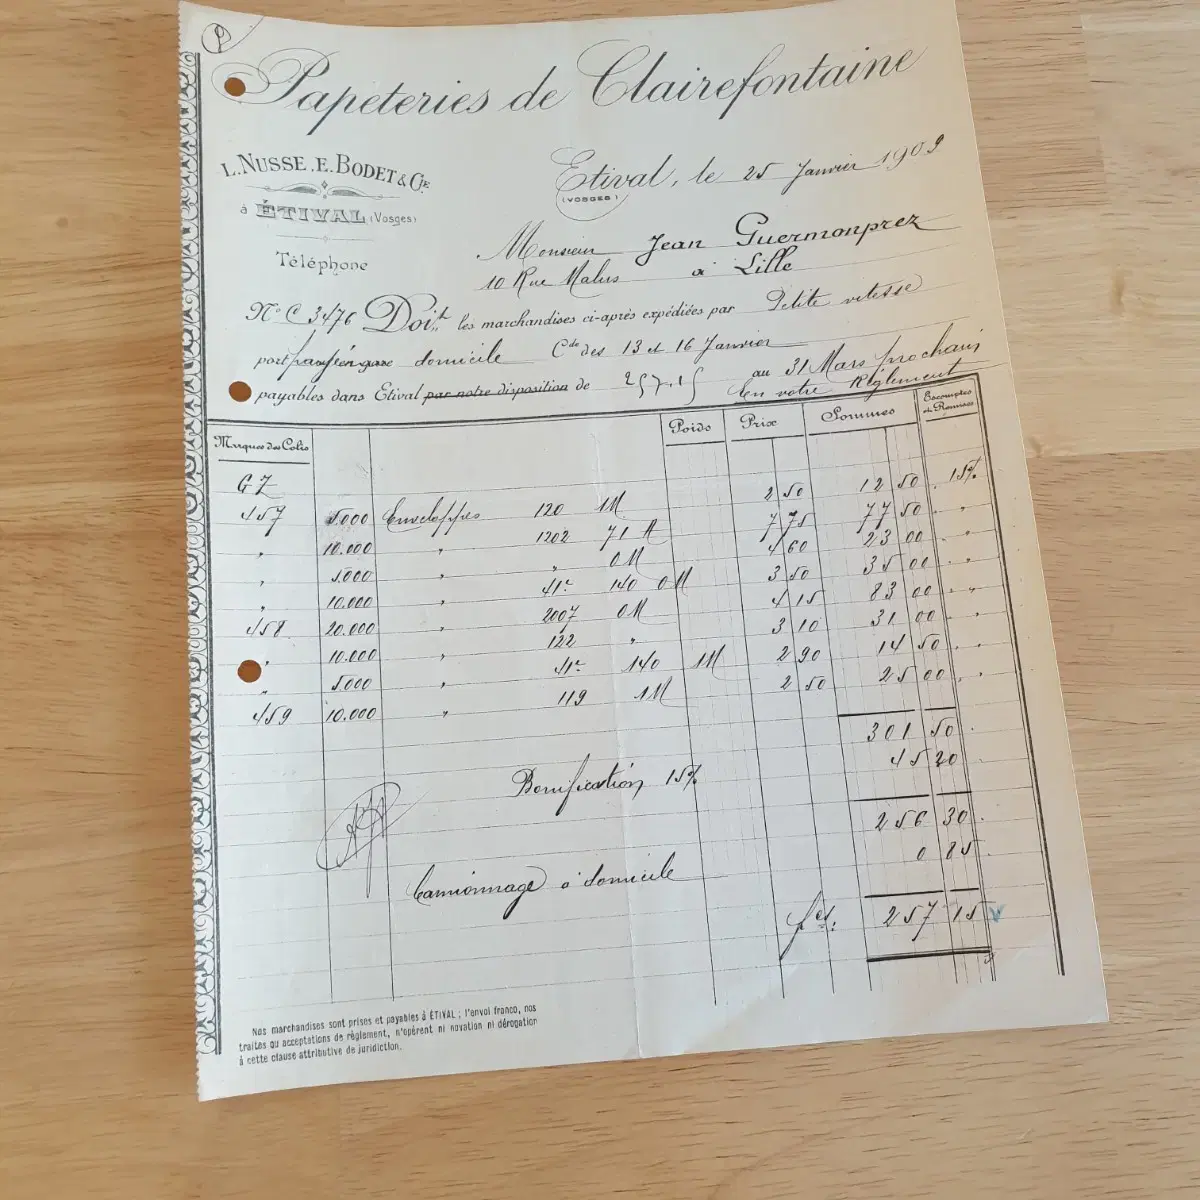 Papeteries de Clairefontaine
L. NUSSE, E. BODET & Cie
à ÉTIVAL (Vosges)
Téléphone
Etival, le 25 Janvier 1909
(VOSGES)
Monsieur Jean Guermonprez
10 Rue Malus à Lille
No C 3476 Doit les marchandises ci-après expédiées par Petite vitesse
port franco en gare domicile Cde des 13 et 16 Janvier
payables dans Etival par notre disposition de 257.15 au 31 Mars prochain
En votre Règlement
Marques des Colis Poids Prix Sommes Escomptes et Remises
GZ
457 5.000 Enveloppes 120 1M 2 50 12 50 15%
" 10.000 " 1202 71 M 7 75 77 50 "
" 5.000 " " 0M 4 60 23 00 "
" 10.000 " 41c 140 0M 3 50 35 00 "
458 20.000 " 2007 0M 4 15 83 00 "
" 10.000 " 122 " 3 10 31 00 "
" 5.000 " 41c 140 1M 2 90 14 50 "
459 10.000 " 119 1M 2 50 25 00 "
301 50
Bonification 15% 45 20
256 30
Camionnage à domicile 0 85
fcs. 257 15
Nos marchandises sont prises et payables à ÉTIVAL ; l'envoi franco, nos
traites ou acceptations de règlement, n'opèrent ni novation ni dérogation
à cette clause attributive de juridiction.